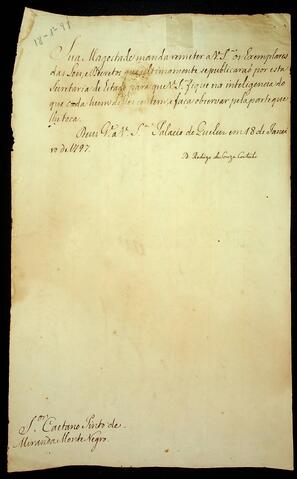 18-1-97
Sua Magestade manda remeter a V. S.ª os Exemplares
das Leis, e Decretos que ultimamente se publicarão por esta
Secretaria de Estado para que V. S.ª fique na inteligencia do
que cada hum delles contem e faça observar pela parte que
lhe toca.
Deus G.e a V. S.ª Palacio de Queluz em 18 de Janei
ro de 1797.
D. Rodrigo de Souza Coutinho
S.or Caetano Pinto de
Miranda Monte Negro.